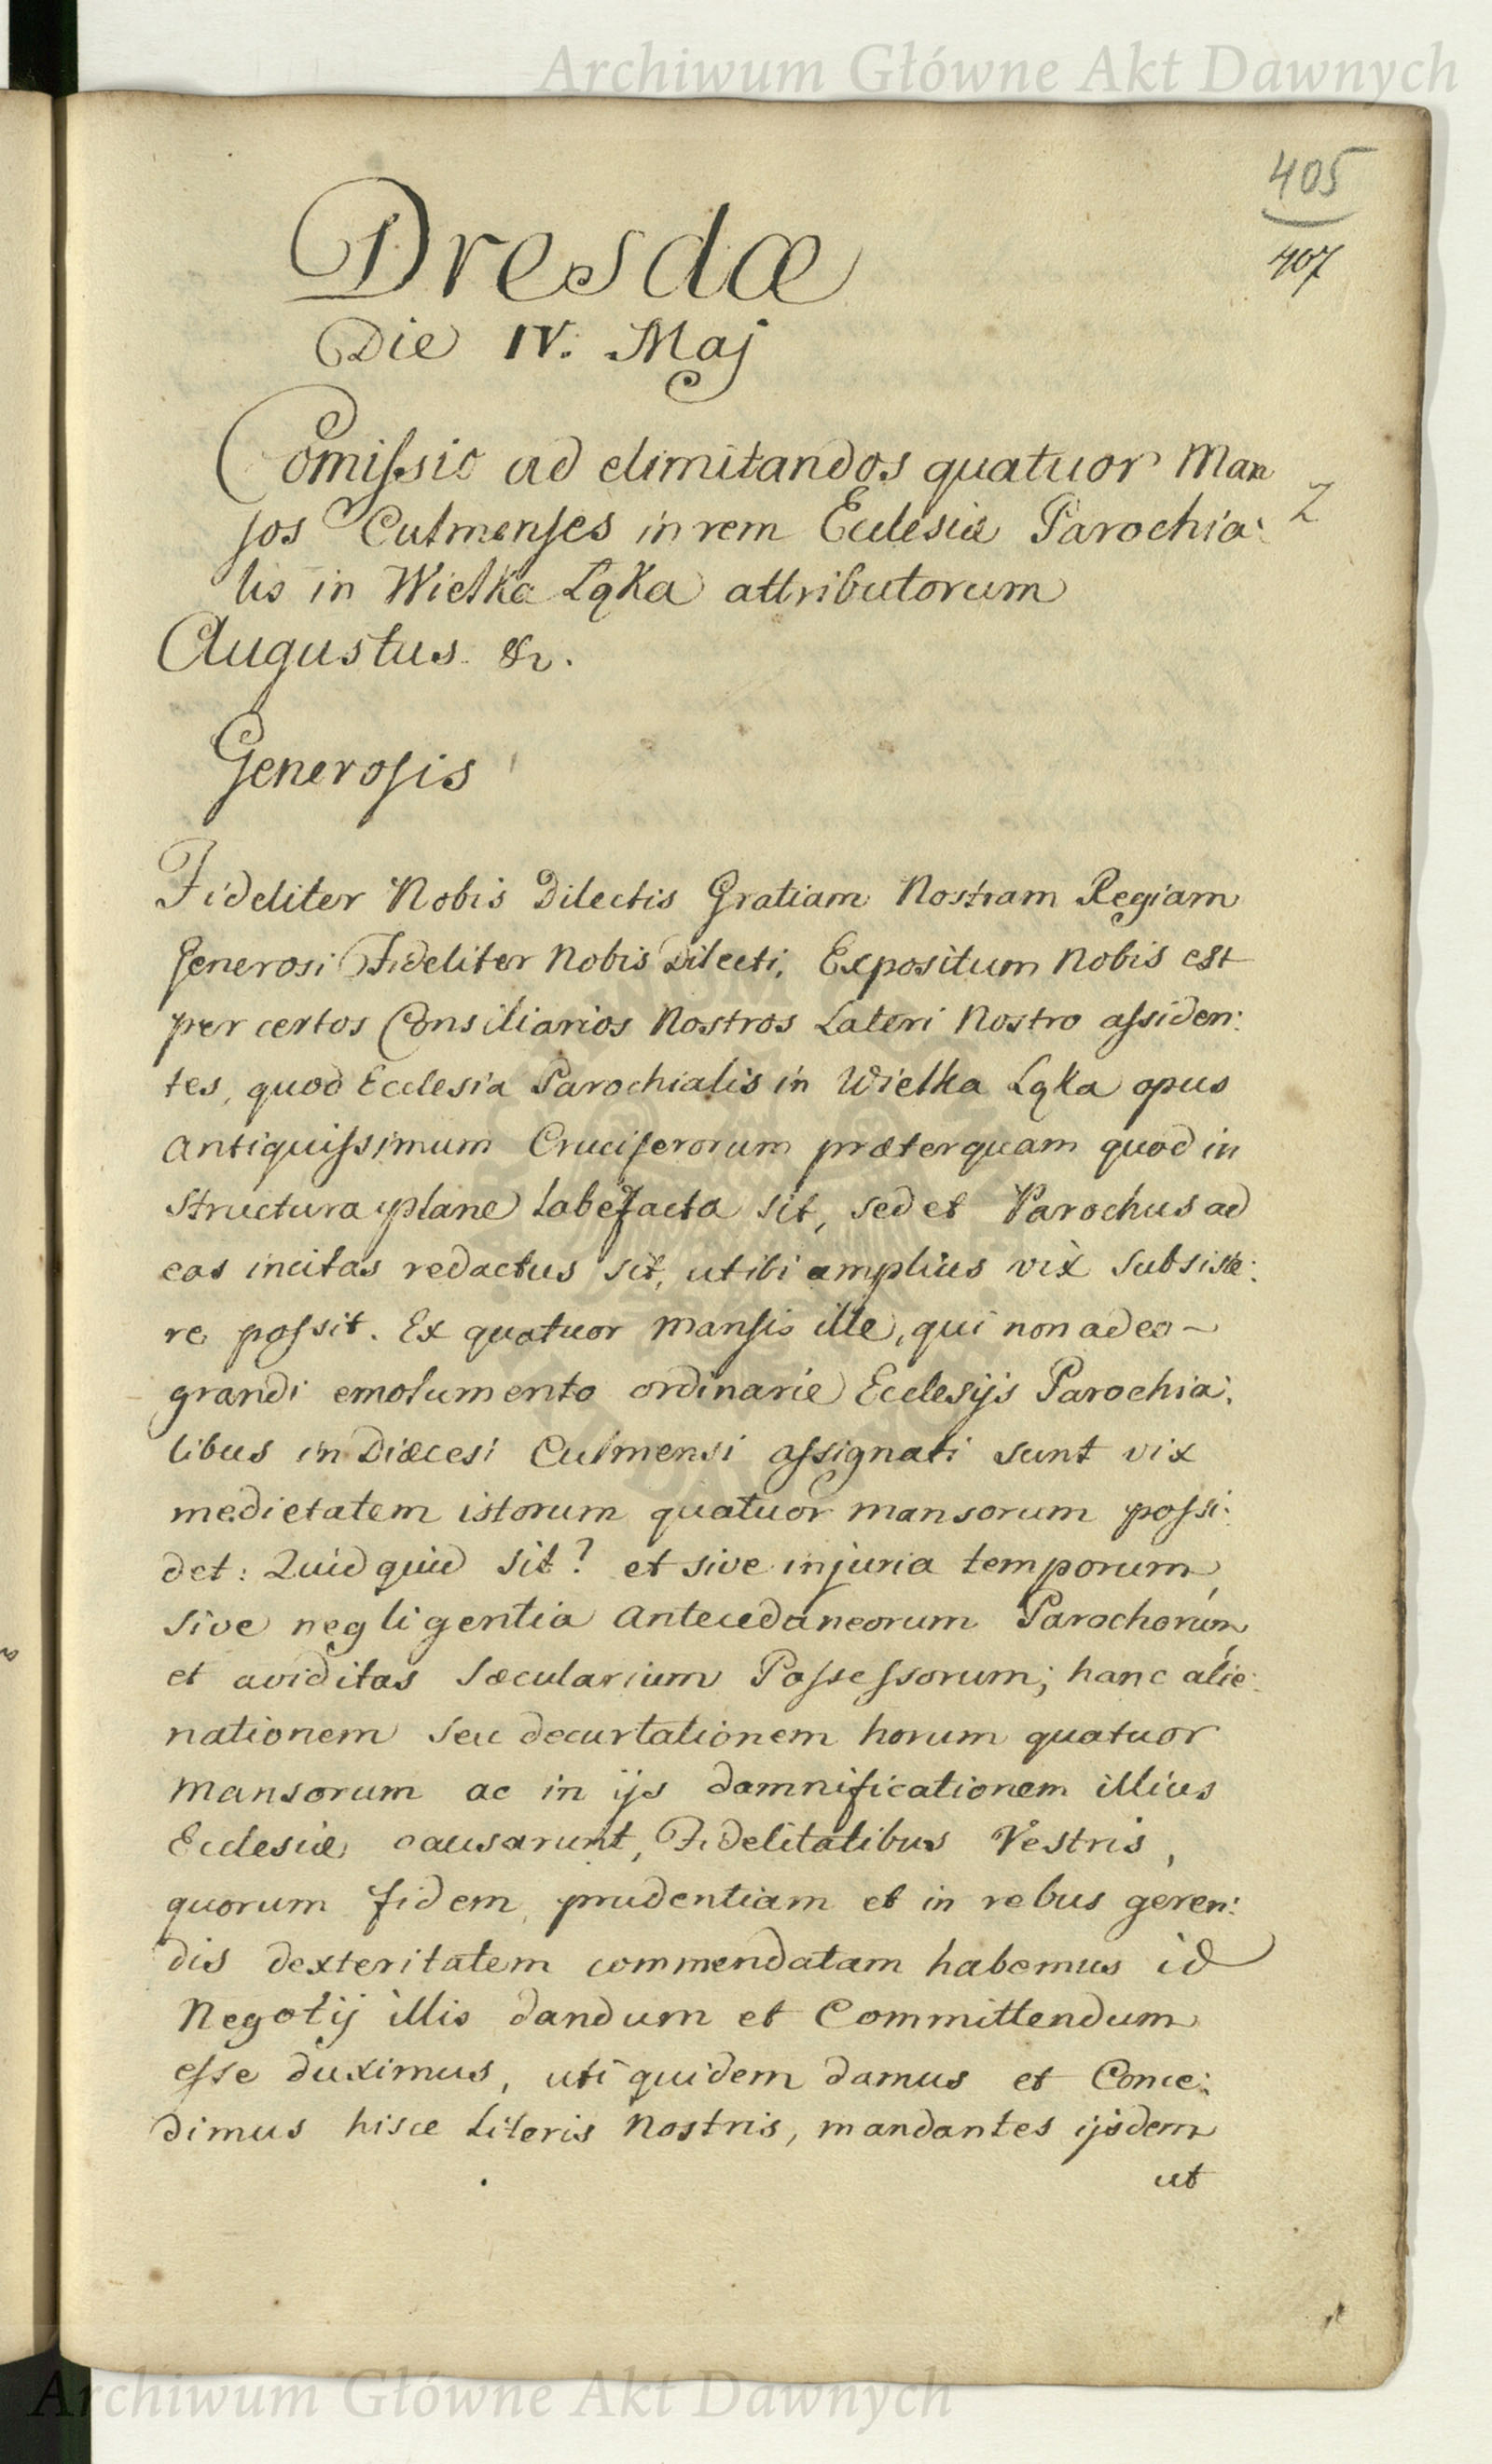 Archiwum Główne Akt Dawnych
405
407
Dresdæ
Die IV. Maj
Comissio ad elimitandos quatuor Man
sos Culmenses in rem Ecclesiæ Parochia:
lis in Wielka Łąka attributorum
Augustus &c.
Generosis
Fideliter Nobis Dilectis Gratiam Nostram Regiam
Generosi Fideliter Nobis Dilecti, Expositum Nobis est
per certos Consiliarios Nostros Lateri Nostro assiden:
tes, quod Ecclesia Parochialis in Wielka Łąka opus
antiquissimum Cruciferorum præterquam quod in
structura plane labefacta sit, sed et Parochus ad
eas incitas redactus sit, ut ibi amplius vix subsiste:
re possit. Ex quatuor mansis ille, qui non adeo
grandi emolumento ordinarie Ecclesijs Parochia:
libus in Diæcesi Culmensi assignati sunt vix
medietatem istorum quatuor mansorum possi:
det: Quidquid sit? et sive injuria temporum,
sive negligentia antecedaneorum Parochorum,
et aviditas sæcularium Possessorum; hanc alie:
nationem seu decurtationem horum quatuor
mansorum ac in ijs damnificationem illius
Ecclesiæ causarunt, Fidelitatibus Vestris,
quorum fidem, prudentiam et in rebus geren:
dis dexteritatem commendatam habemus id
Negotij illis dandum et Committendum
esse duximus, uti quidem damus et Conce:
dimus hisce Literis Nostris, mandantes ijsdem
ut
Archiwum Główne Akt Dawnych